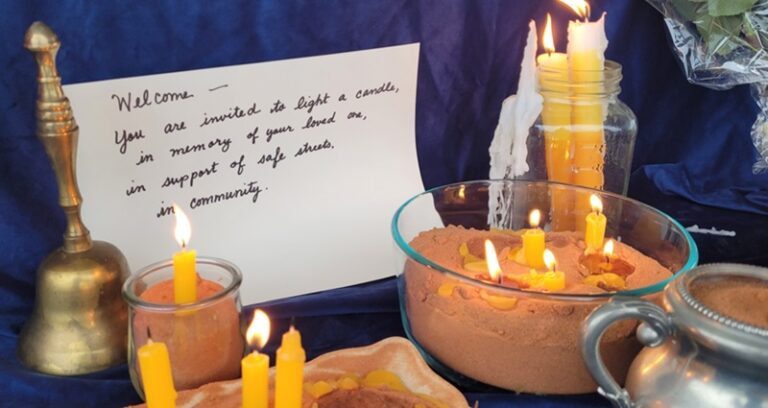 Welcome —
You are invited to light a candle,
in memory of your loved one,
in support of safe streets.
in community.